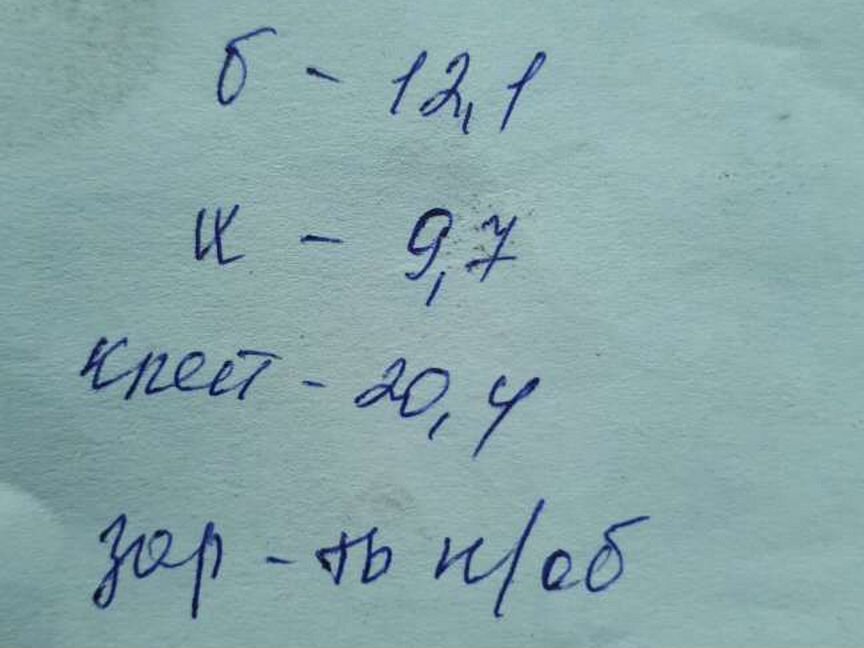 б - 12,1
х - 9,7
крест - 20,4
зар-ть н/об